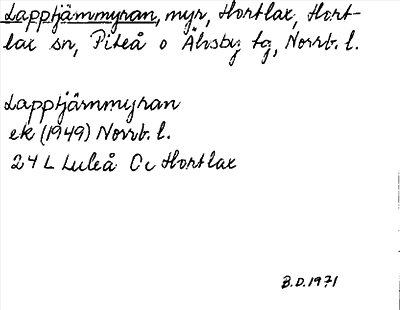 Lapptjämmyran, myr, Hortlax, Hort-
lax sn, Piteå o Älvsby tg, Norrb. l.
Lapptjärnmyran
ek (1949) Norrb. l.
24 L Luleå Cc Hortlax
B.D. 1971